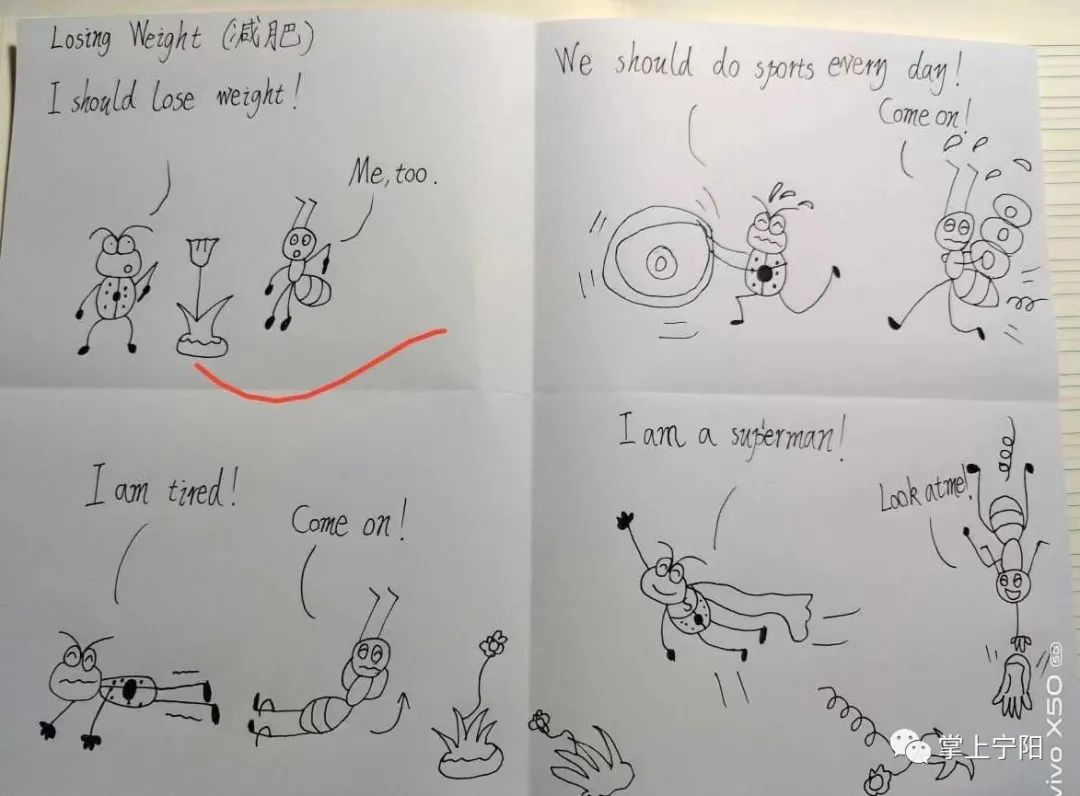 Losing Weight (减肥)
I should lose weight!
Me, too.
We should do sports every day!
Come on!
I am tired!
Come on!
I am a superman!
Look at me!
掌上宁阳
vivo X50 5G